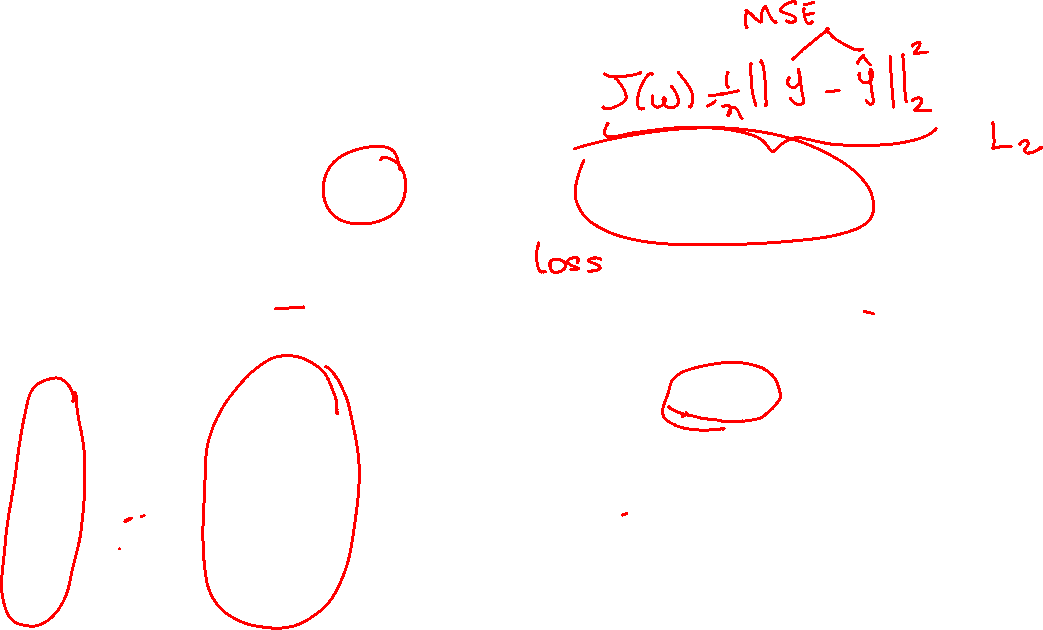 MSE
J(w) = 1/n || y - ŷ ||₂²
L₂
loss